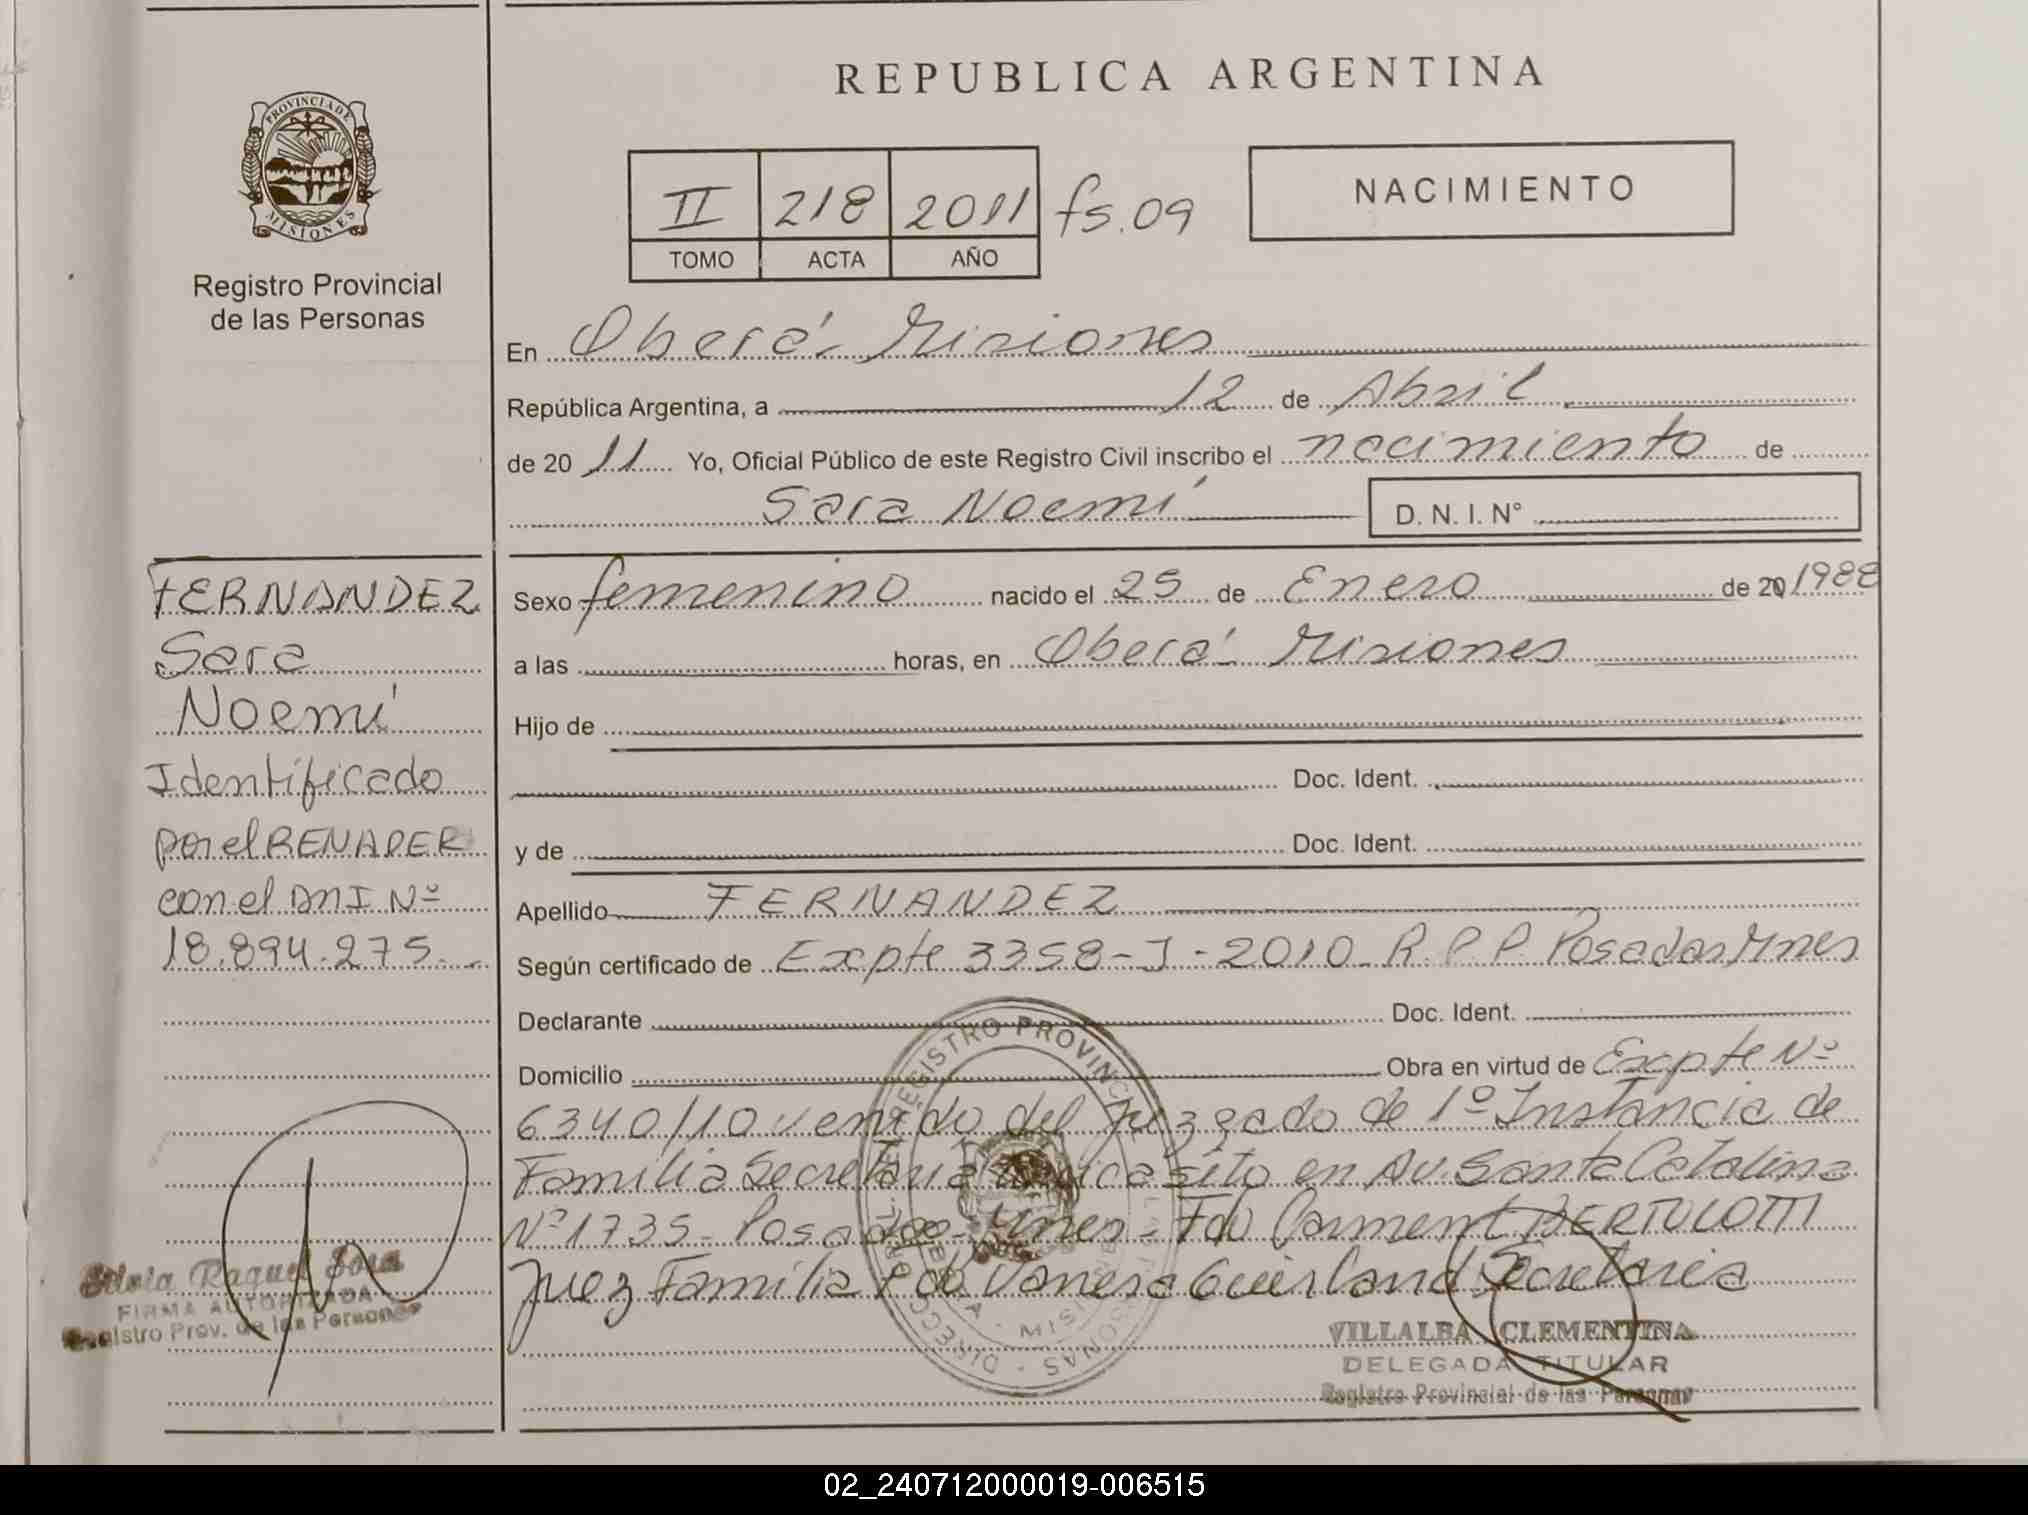 REPUBLICA ARGENTINA
PROVINCIA DE
MISIONES
Registro Provincial
de las Personas
II 218 2011 fs. 09
TOMO ACTA AÑO
NACIMIENTO
En Oberá - Misiones
República Argentina, a 12 de Abril
de 20 11 Yo, Oficial Público de este Registro Civil inscribo el nacimiento de
Sara Noemí D. N. I. N°
Sexo femenino nacido el 25 de Enero de 20 1988
a las horas, en Oberá - Misiones
Hijo de
Doc. Ident.
y de Doc. Ident.
Apellido FERNANDEZ
Según certificado de Expte 3358-J-2010 R.P.P. Posadas Mnes
Declarante Doc. Ident.
Domicilio Obra en virtud de Expte Nº
6340/10 venido del juzgado de 1º Instancia de
Familia Secretaria unica sito en Av. Santa Catalina
Nº 1735 - Posadas - Mnes - Fdo BERTOLOTTI
Juez Familia Fdo Vanesa Secretaria
FERNANDEZ
Sara
Noemí
Identificado
por el RENAPER
con el DNI Nº
18.894.275
Silvia Raquel Sosa
FIRMA AUTORIZADA
Registro Prov. de las Personas
VILLALBA CLEMENTINA
DELEGADA TITULAR
Registro Provincial de las Personas
02_240712000019-006515